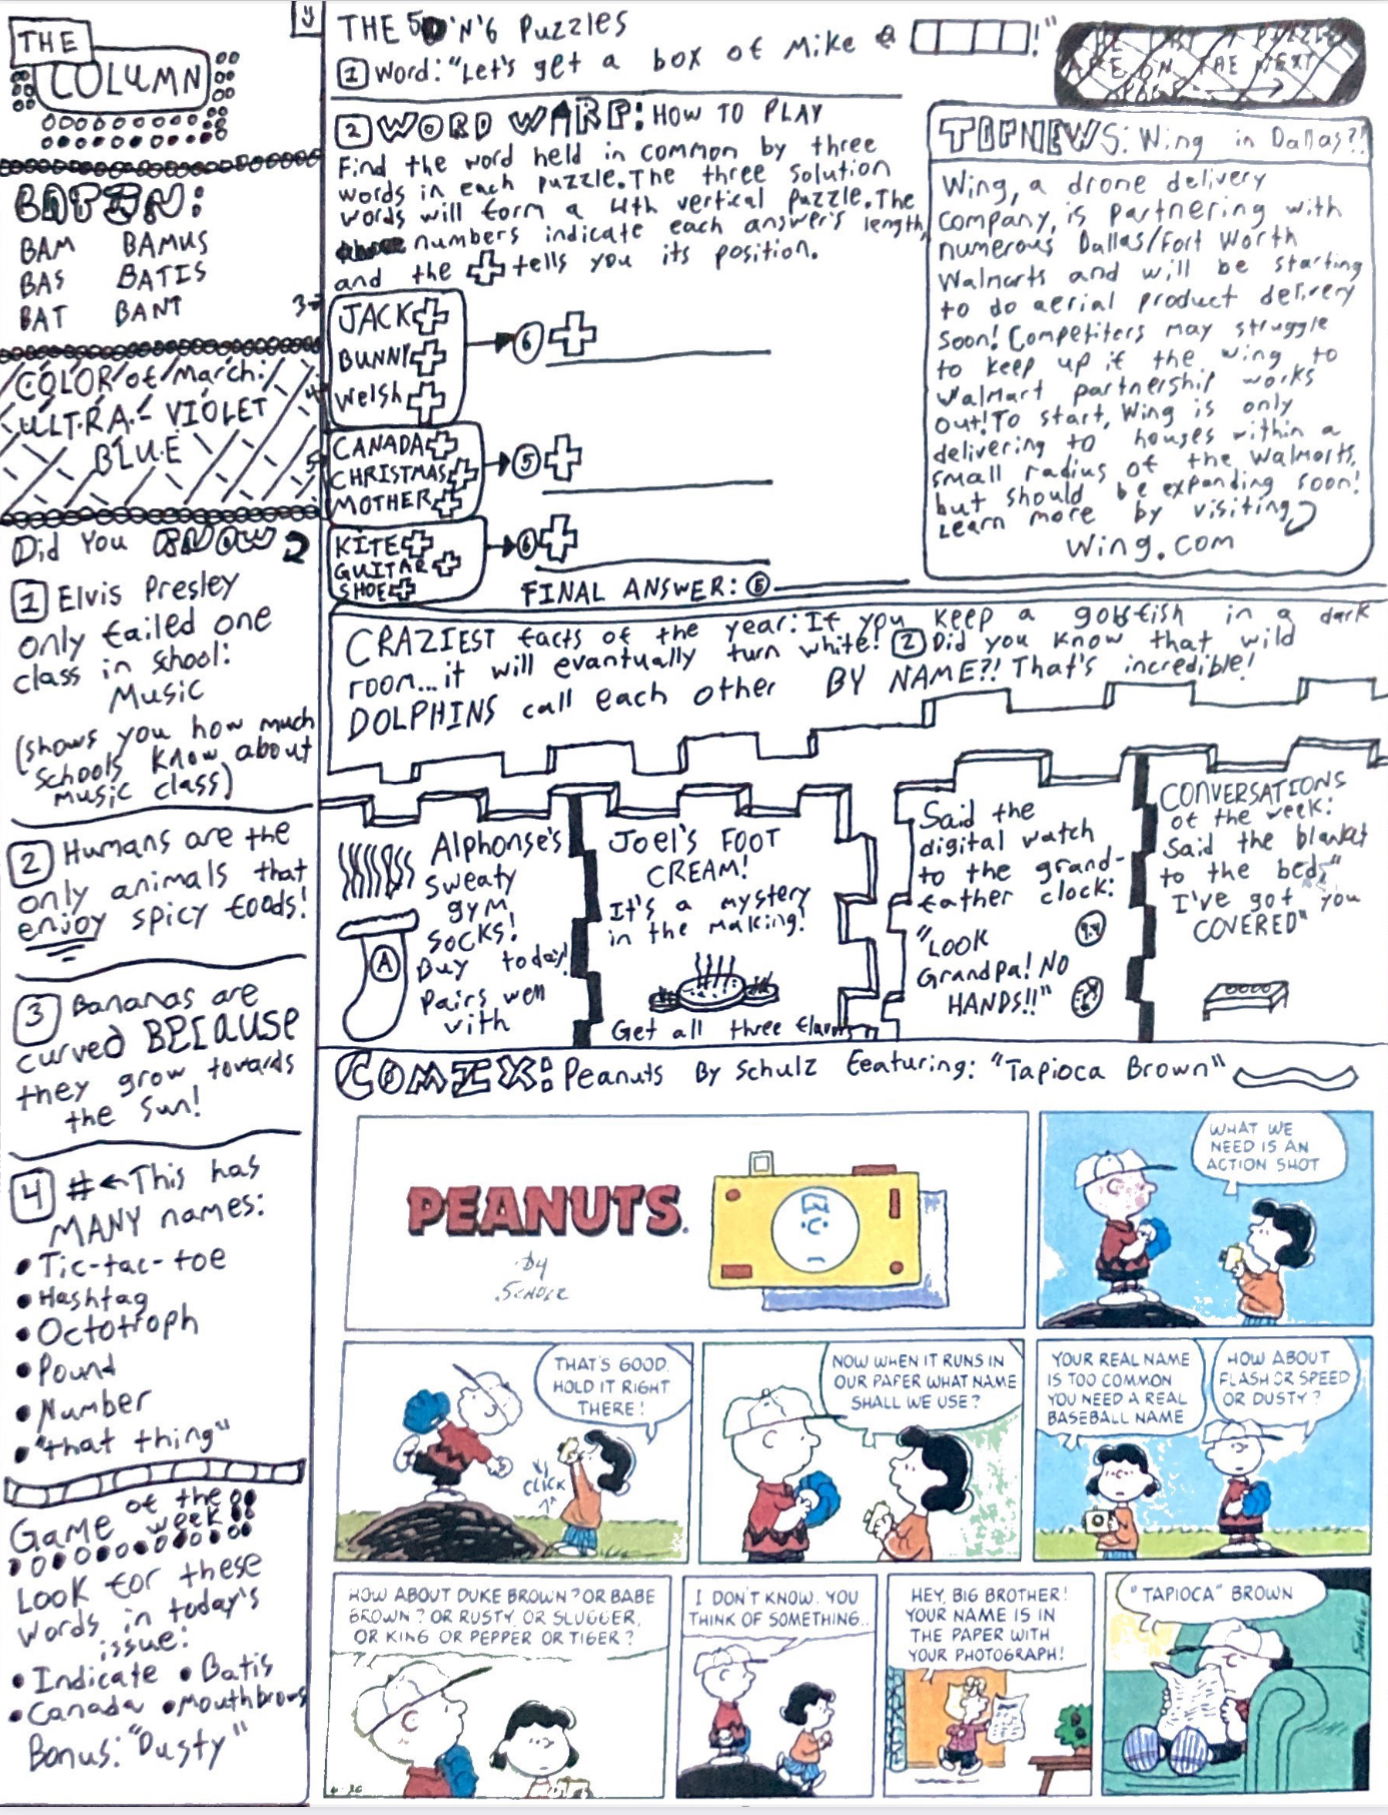 THE
COLUMN
BATIN:
BAM BAMUS
BAS BATIS
BAT BANT
COLOR of March:
ULTRA- VIOLET
BLUE
Did You KNOW?
1 Elvis Presley
only failed one
class in school:
Music
(shows you how much
schools know about
music class)
2 Humans are the
only animals that
enjoy spicy foods!
3 Bananas are
curved BECAUSE
they grow towards
the sun!
4 # ← This has
MANY names:
• Tic-tac-toe
• Hashtag
• Octotroph
• Pound
• Number
• "that thing"
Game of the
week
Look for these
words in today's
issue:
• Indicate • Batis
• Canada • Mouthbrows
Bonus: "Dusty"
THE 50'N'6 Puzzles
1 Word: "Let's get a box of Mike @ !"
2 WORD WARP: HOW TO PLAY
Find the word held in common by three
words in each puzzle. The three solution
words will form a 4th vertical puzzle. The
numbers indicate each answer's length,
and the + tells you its position.
JACK+
BUNNY+
Welsh+
6 +
CANADA+
CHRISTMAS+
MOTHER+
5 +
KITE+
GUITAR+
SHOE+
6 +
FINAL ANSWER: 5
ARE ON THE NEXT
TOPNEWS: Wing in Dallas?!
Wing, a drone delivery
company, is partnering with
numerous Dallas/Fort Worth
Walmarts and will be starting
to do aerial product delivery
soon! Competiters may struggle
to keep up if the wing to
Walmart partnership works
out! To start, Wing is only
delivering to houses within a
small radius of the Walmarts,
but should be expanding soon!
Learn more by visiting
wing.com
CRAZIEST facts of the year: If you keep a goldfish in a dark
room... it will evantually turn white! 2 Did you know that wild
DOLPHINS call each other BY NAME?! That's incredible!
Alphonse's
sweaty
gym
socks!
Buy today!
Pairs well
with
A
Joel's FOOT
CREAM!
It's a mystery
in the making!
Get all three
Said the
digital watch
to the grand-
father clock:
"LOOK
Grandpa! NO
HANDS!!"
CONVERSATIONS
of the week:
Said the blanket
to the bed,"
I've got you
COVERED"
COMIX: Peanuts By Schulz Featuring: "Tapioca Brown"
PEANUTS.
by
SCHULZ
WHAT WE
NEED IS AN
ACTION SHOT
THAT'S GOOD.
HOLD IT RIGHT
THERE!
CLICK
NOW WHEN IT RUNS IN
OUR PAPER WHAT NAME
SHALL WE USE?
YOUR REAL NAME
IS TOO COMMON
YOU NEED A REAL
BASEBALL NAME
HOW ABOUT
FLASH OR SPEED
OR DUSTY?
HOW ABOUT DUKE BROWN? OR BABE
BROWN? OR RUSTY OR SLUGGER,
OR KING OR PEPPER OR TIGER?
I DON'T KNOW. YOU
THINK OF SOMETHING..
HEY, BIG BROTHER!
YOUR NAME IS IN
THE PAPER WITH
YOUR PHOTOGRAPH!
"TAPIOCA" BROWN
SCHULZ